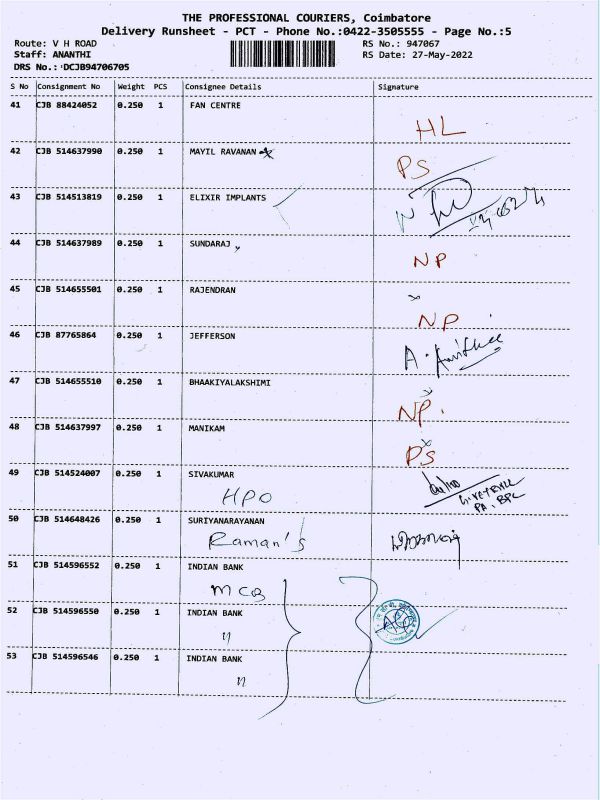 THE PROFESSIONAL COURIERS, Coimbatore
Delivery Runsheet - PCT - Phone No.:0422-3505555 - Page No.:5
Route: V H ROAD RS No.: 947067
Staff: ANANTHI RS Date: 27-May-2022
DRS No.: DCJB94706705
S No Consignment No Weight PCS Consignee Details Signature
41 CJB 88424052 0.250 1 FAN CENTRE
HL
42 CJB 514637990 0.250 1 MAYIL RAVANAN
PS
43 CJB 514513819 0.250 1 ELIXIR IMPLANTS
44 CJB 514637989 0.250 1 SUNDARAJ
NP
45 CJB 514655501 0.250 1 RAJENDRAN
NP
46 CJB 87765864 0.250 1 JEFFERSON
47 CJB 514655510 0.250 1 BHAAKIYALAKSHIMI
NP.
48 CJB 514637997 0.250 1 MANIKAM
PS
49 CJB 514524007 0.250 1 SIVAKUMAR
HPO
50 CJB 514648426 0.250 1 SURIYANARAYANAN
Raman's
51 CJB 514596552 0.250 1 INDIAN BANK
MCB
52 CJB 514596550 0.250 1 INDIAN BANK
"
53 CJB 514596546 0.250 1 INDIAN BANK
"